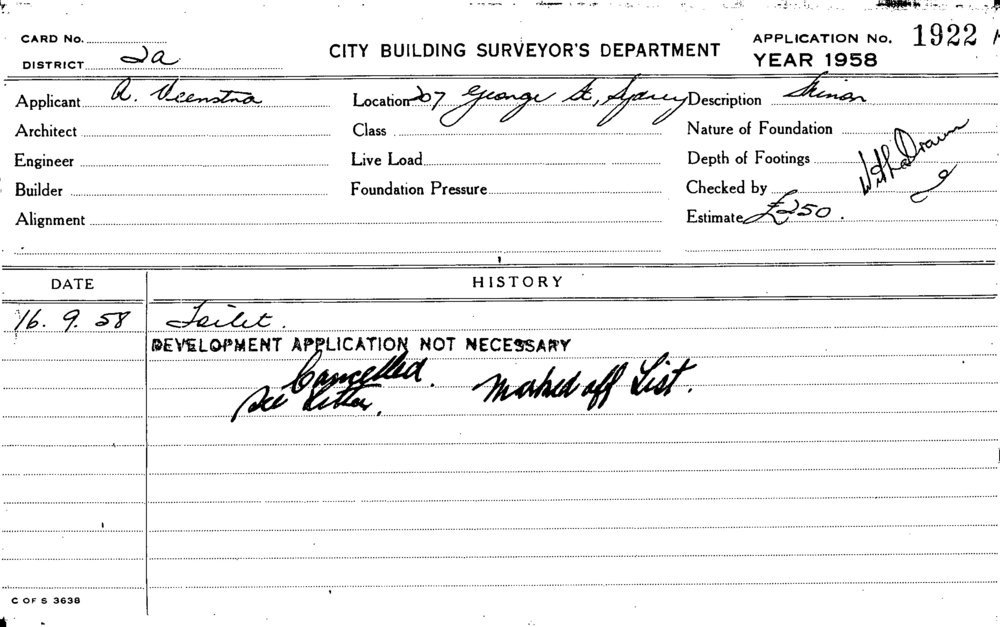 CARD No. CITY BUILDING SURVEYOR'S DEPARTMENT APPLICATION No. 1922
DISTRICT 2a YEAR 1958
Applicant A. Veenstra Location 207 George St, Sydney Description Minor
Architect Class Nature of Foundation
Engineer Live Load Depth of Footings WithDrawn
Builder Foundation Pressure Checked by
Alignment Estimate £250.
DATE HISTORY
16. 9. 58 Toilet.
DEVELOPMENT APPLICATION NOT NECESSARY
Cancelled. Marked off List.
See Letter.
C OF S 3638